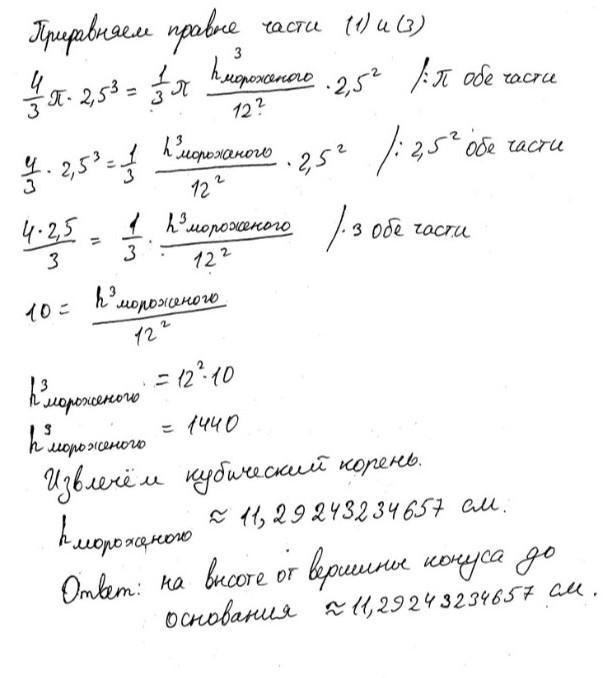 Приравняем правые части (1) и (3)
4/3 π · 2,5³ = 1/3 π h³мороженого/12² · 2,5² /:π обе части
4/3 · 2,5³ = 1/3 h³мороженого/12² · 2,5² /:2,5² обе части
4·2,5/3 = 1/3 · h³мороженого/12² /·3 обе части
10 = h³мороженого/12²
h³мороженого = 12²·10
h³мороженого = 1440
Извлечём кубический корень.
hмороженого ≈ 11,29243234657 см.
Ответ: на высоте от вершины конуса до
основания ≈ 11,29243234657 см.